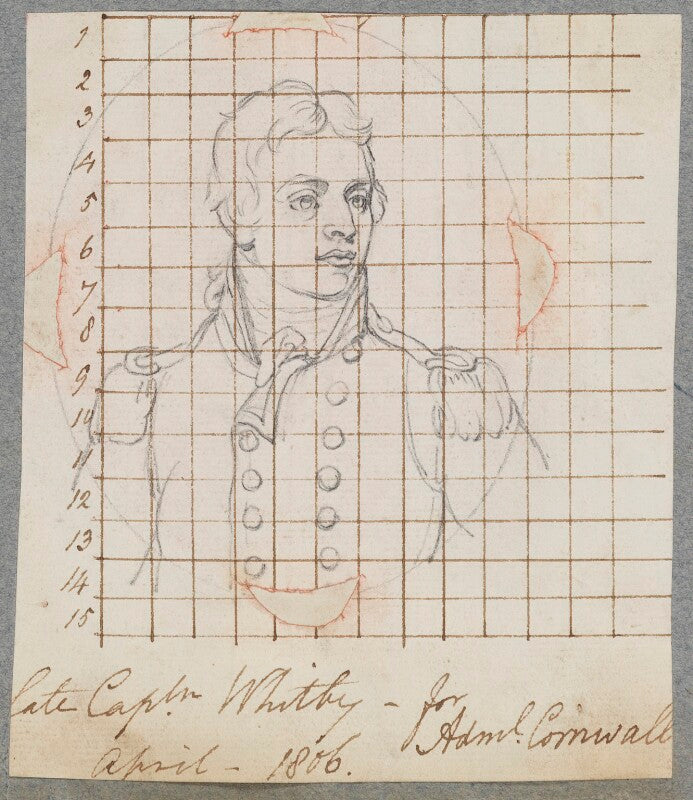 1
2
3
4
5
6
7
8
9
10
11
12
13
14
15
late Captn. Whitby - for
Adml. Cornwall
April - 1806.